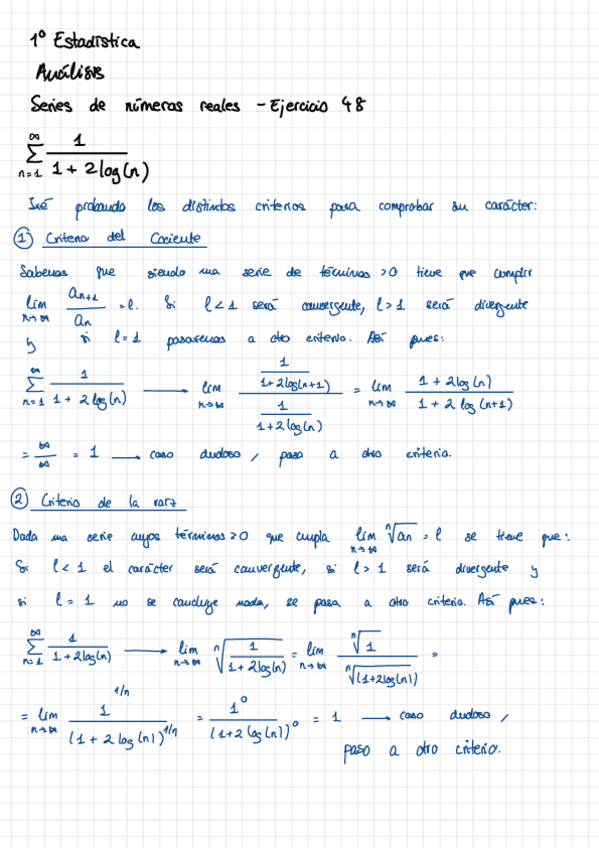 1º Estadística
Análisis
Series de números reales - Ejercicio 48
∞ Σ n=1 1 / (1 + 2 log(n))
Iré probando los distintos criterios para comprobar su carácter:
① Criterio del Cociente
Sabemos que siendo una serie de términos >0 tiene que cumplir
lim n→∞ an+1 / an = l. Si l<1 será convergente, l>1 será divergente
y si l=1 pasaremos a otro criterio. Así pues:
∞ Σ n=1 1 / (1 + 2 log(n)) ⟶ lim n→∞ (1 / (1+2log(n+1))) / (1 / (1+2log(n))) = lim n→∞ (1 + 2log(n)) / (1 + 2 log(n+1))
= ∞/∞ = 1 ⟶ caso dudoso, paso a otro criterio.
② Criterio de la raíz
Dada una serie cuyos términos >0 que cumpla lim n→∞ ⁿ√an = l se tiene que:
Si l<1 el carácter será convergente, si l>1 será divergente y
si l=1 no se concluye nada, se pasa a otro criterio. Así pues:
∞ Σ n=1 1 / (1+2log(n)) ⟶ lim n→∞ ⁿ√(1 / (1+2log(n))) = lim n→∞ ⁿ√1 / ⁿ√(1+2log(n)) =
= lim n→∞ 1^1/n / (1 + 2 log(n))^1/n = 1^0 / (1+2 log(n))^0 = 1 ⟶ caso dudoso,
paso a otro criterio.